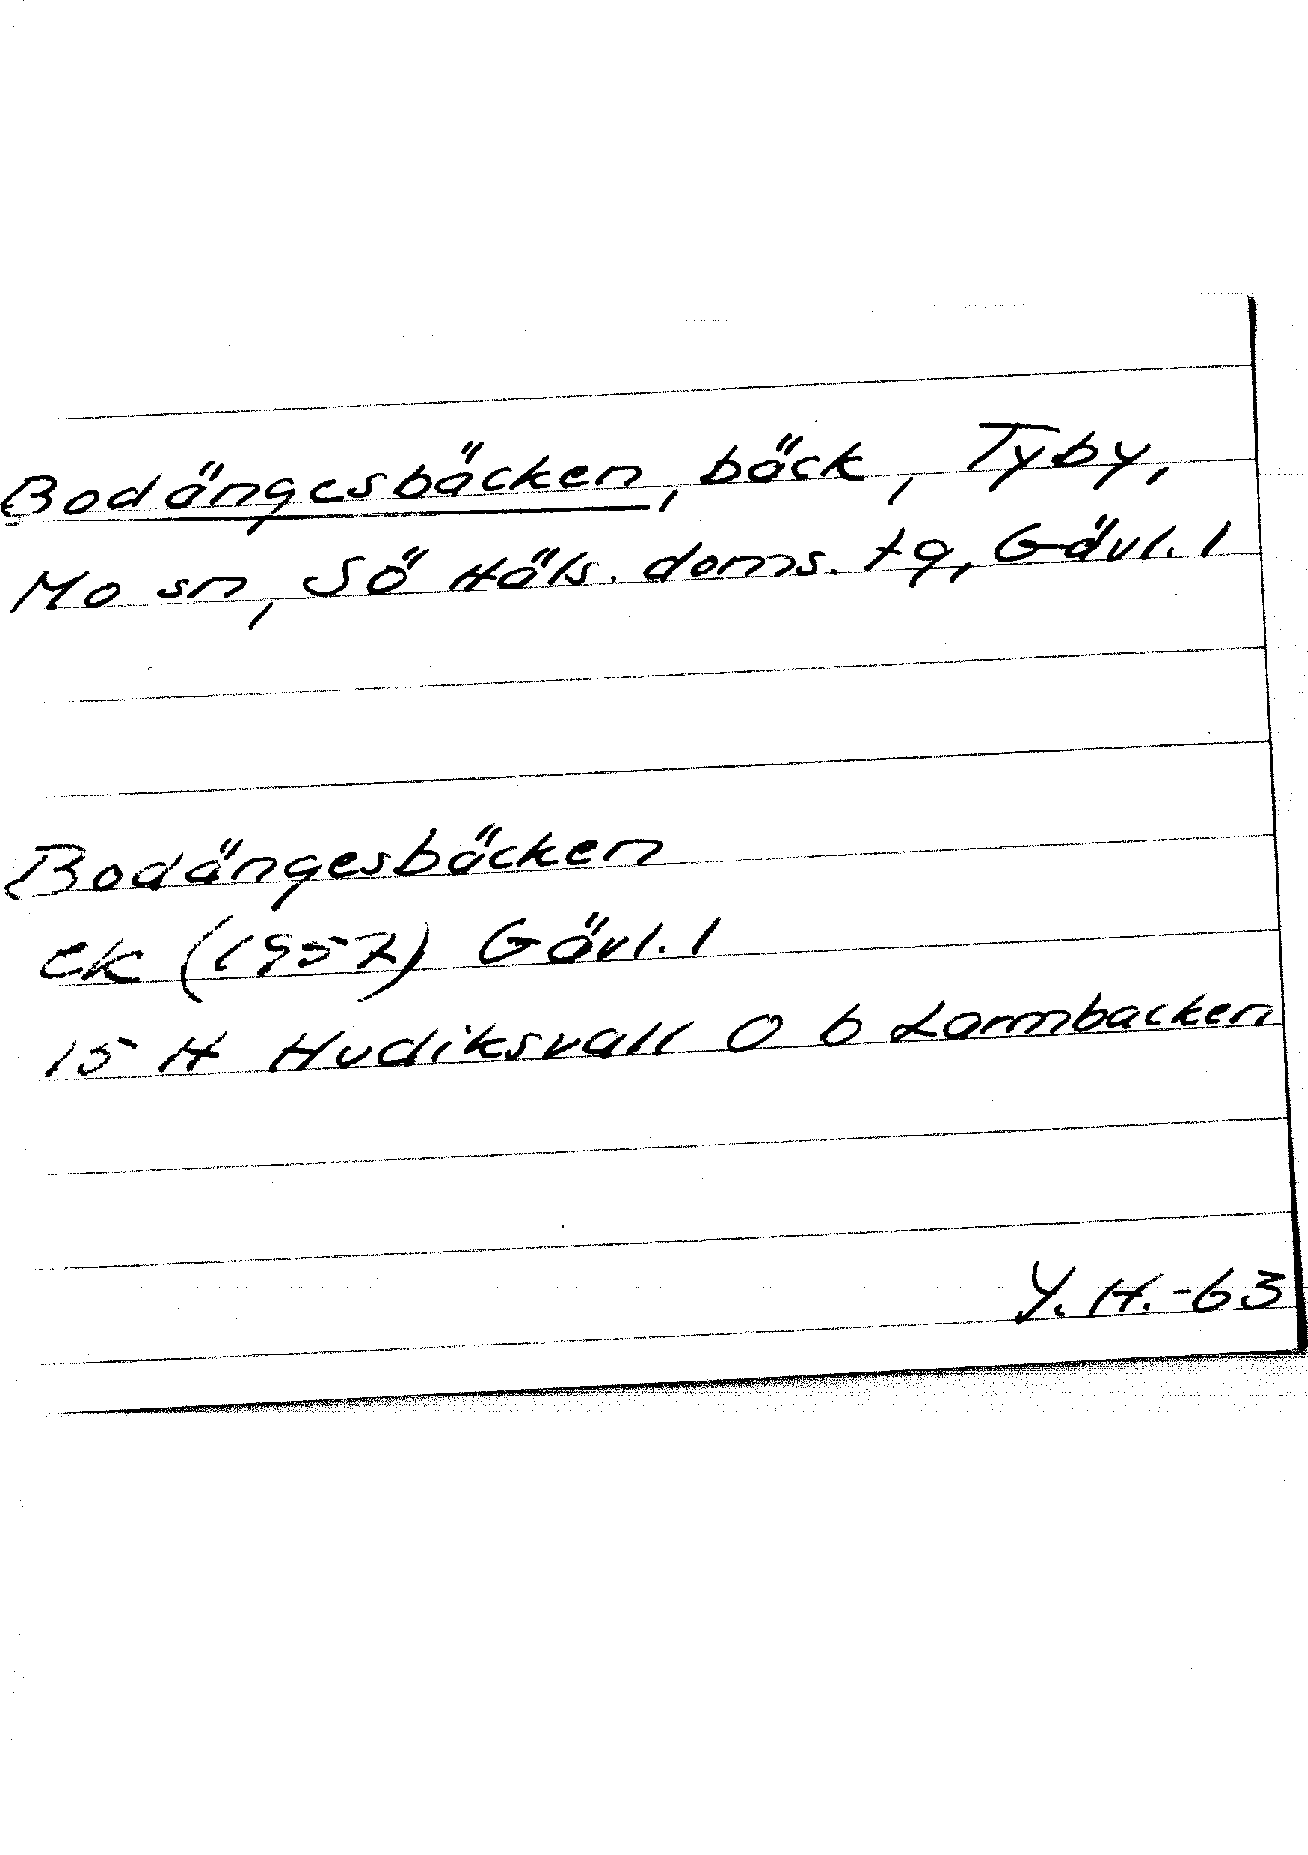 Bodängesbäcken, bäck, Tyby,
Mo sn, Sö Häls. doms. tg, Gävl. l
Bodängesbäcken
ek (1957) Gävl. l
15 H Hudiksvall O b Larmbacken
Y. H. -63